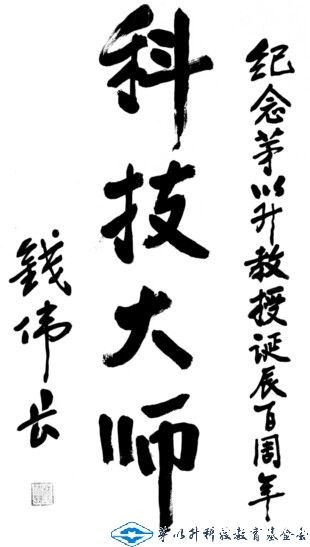 纪念茅以升教授诞辰百周年
科技大师
钱伟长
茅以升科技教育基金会